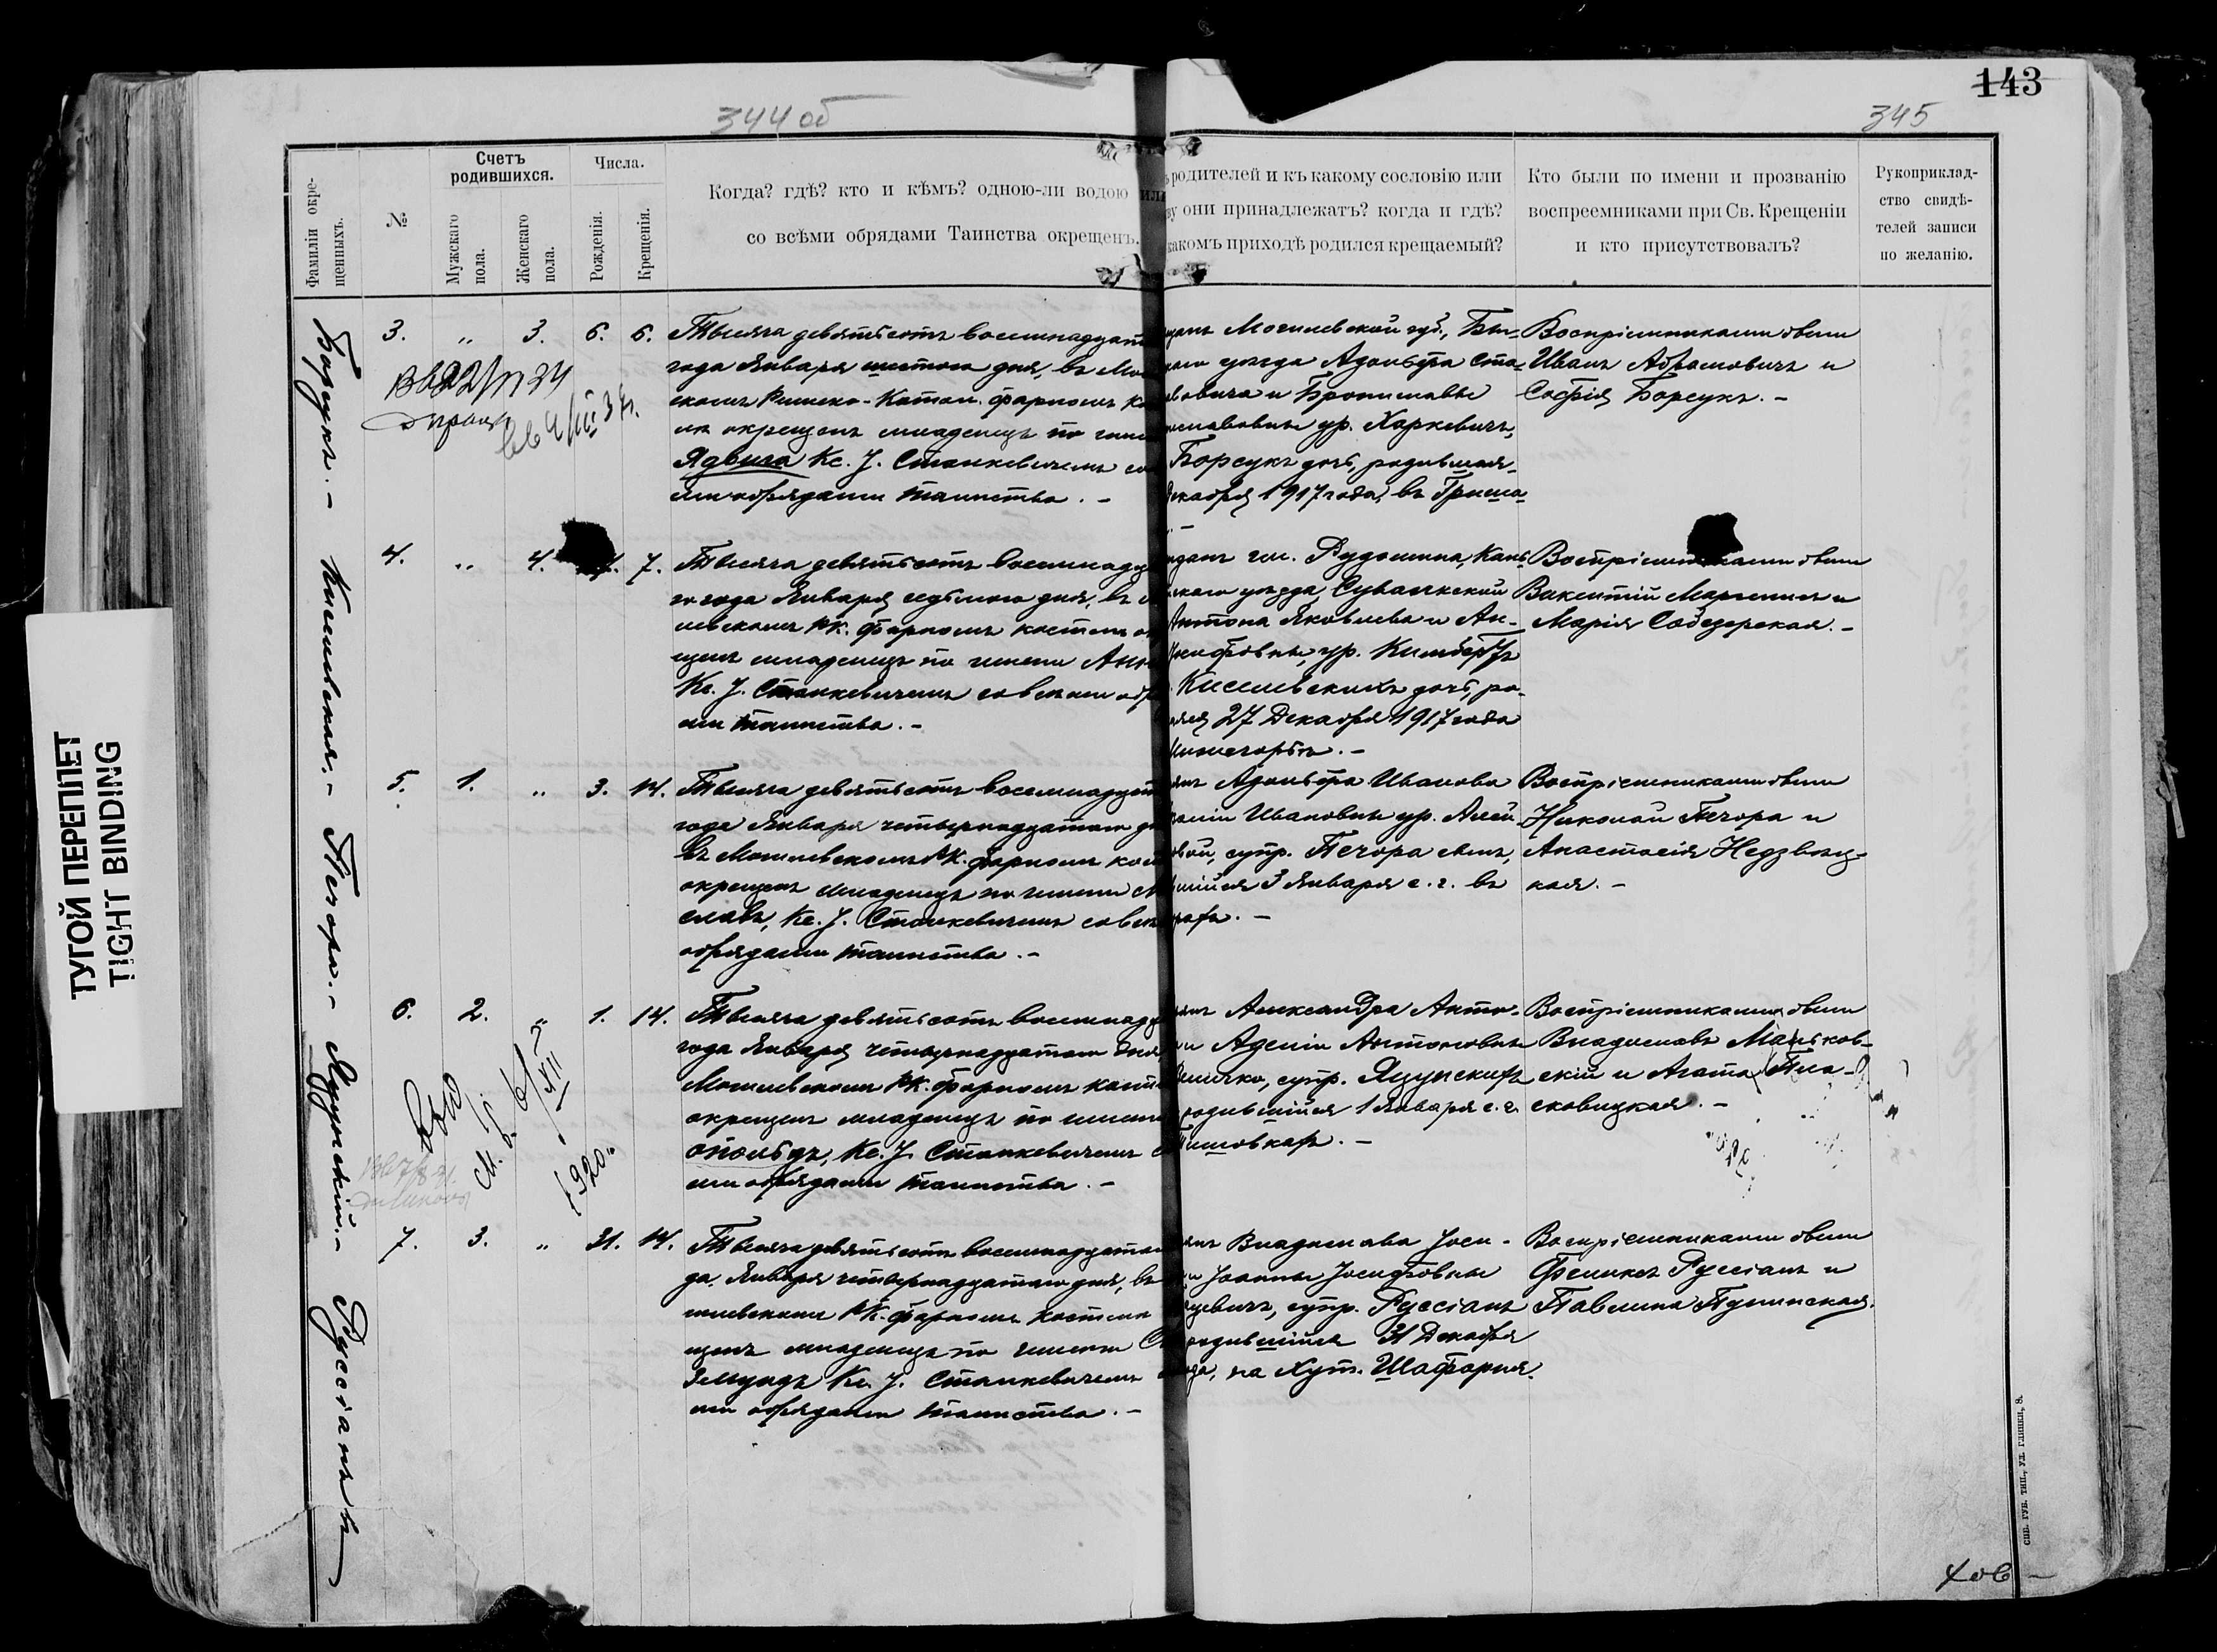 143
344 об
345
ТУГОЙ ПЕРЕПЛЕТ
TIGHT BINDING
Фамиліи окре-
щенныхъ.
№
Счетъ
родившихся.
Мужскаго
пола.
Женскаго
пола.
Числа.
Рожденія.
Крещенія.
Когда? гдѣ? кто и кѣмъ? одною-ли водою или
со всѣми обрядами Таинства окрещенъ.
родителей и къ какому сословію или
ву они принадлежатъ? когда и гдѣ?
какомъ приходѣ родился крещаемый?
Кто были по имени и прозванію
воспреемниками при Св. Крещеніи
и кто присутствовалъ?
Рукоприклад-
ство свидѣ-
телей записи
по желанію.
Борсукъ. –
3. „ 3. 6. 6.
Тысяча девятьсотъ восемнадцат
года Января шестого дня, въ Мо
скомъ Римско-Катол. фарномъ ко
лѣ окрещенъ младенецъ по име
Ядвига Кс. J. Станкевичемъ со
ми обрядами таинства. –
щанъ Могилевской губ., Бы-
каго уѣзда Адольфа Ста-
вовича и Брониславы
иславовны ур. Харкевичъ,
Борсукъ дочь, родившаяся
Декабря 1917 года, въ Гриша
. –
Воспріемниками были
Иванъ Абрамовичъ и
Софія Борсукъ. –
Кисилевская. –
4. „ 4. 7.
Тысяча девятьсотъ восемнадца
го года Января седьмого дня, въ М
левскомъ РК. фарномъ костелѣ ок
щенъ младенецъ по имени Анн
Кс. J. Станкевичемъ со всѣми обря
ми таинства. –
жданъ гм. Рудомина, Каль
скаго уѣзда, Сувалкской
Антона Яковлева и Ан-
Іосифовны, ур. Кимбертъ
Кисилевскихъ дочь, ро-
аяся 27 Декабря 1917 года
Воспріемниками были
Викентій Марсинъ и
Марія Соб едерская. –
Печора. –
5. 1. „ 3. 14.
Тысяча девятьсотъ восемнадцат
года Января четырнадцатаго дн
въ Могилевскомъ РК. фарномъ кост
окрещенъ младенецъ по имени
славъ, Кс. J. Станкевичемъ со всѣм
обрядами таинства. –
янъ Адольфа Иванова
Ивановны ур. Алей
вой, супр. Печора сынъ,
шійся 3 Января с. г. въ
Воспріемниками были
Николай Печора и
Анастасія Недзвѣц-
кая. –
Яцунскій. –
6. 2. „ 1. 14.
Тысяча девятьсотъ восемнадца
года Января четырнадцатаго дня
Могилевскомъ РК. фарномъ кост
окрещенъ младенецъ по имени
опольдъ, Кс. J. Станкевичемъ с
ми обрядами таинства. –
янъ Александра Анто-
и Аделіи Антоновны
супр. Яцунскихъ
родившійся 1 Января с. г.
Тишовкахъ. –
Воспріемниками были
Владиславъ Маньков-
скій и Агата Пла-
сковицкая. –
1920.
Руссіанъ
7. 3. „ 31. 14.
Тысяча девятьсотъ восемнадцатаго
да, Января четырнадцатаго дня, въ
гилевскомъ РК. фарномъ костелѣ
щенъ младенецъ по имени С
Кс. J. Станкевичемъ
ми обрядами таинства. –
янъ Владислава Jоси-
и Jоанны Jосифовны
супр. Руссіанъ
родившійся 31 Декабря
года, на Хут. Шафарня.
Воспріемниками были
Феликсъ Руссіанъ и
Павлина Пупинская.
СПБ. ГУБ. ТИП., УЛ. ГЛИНКИ, 8.